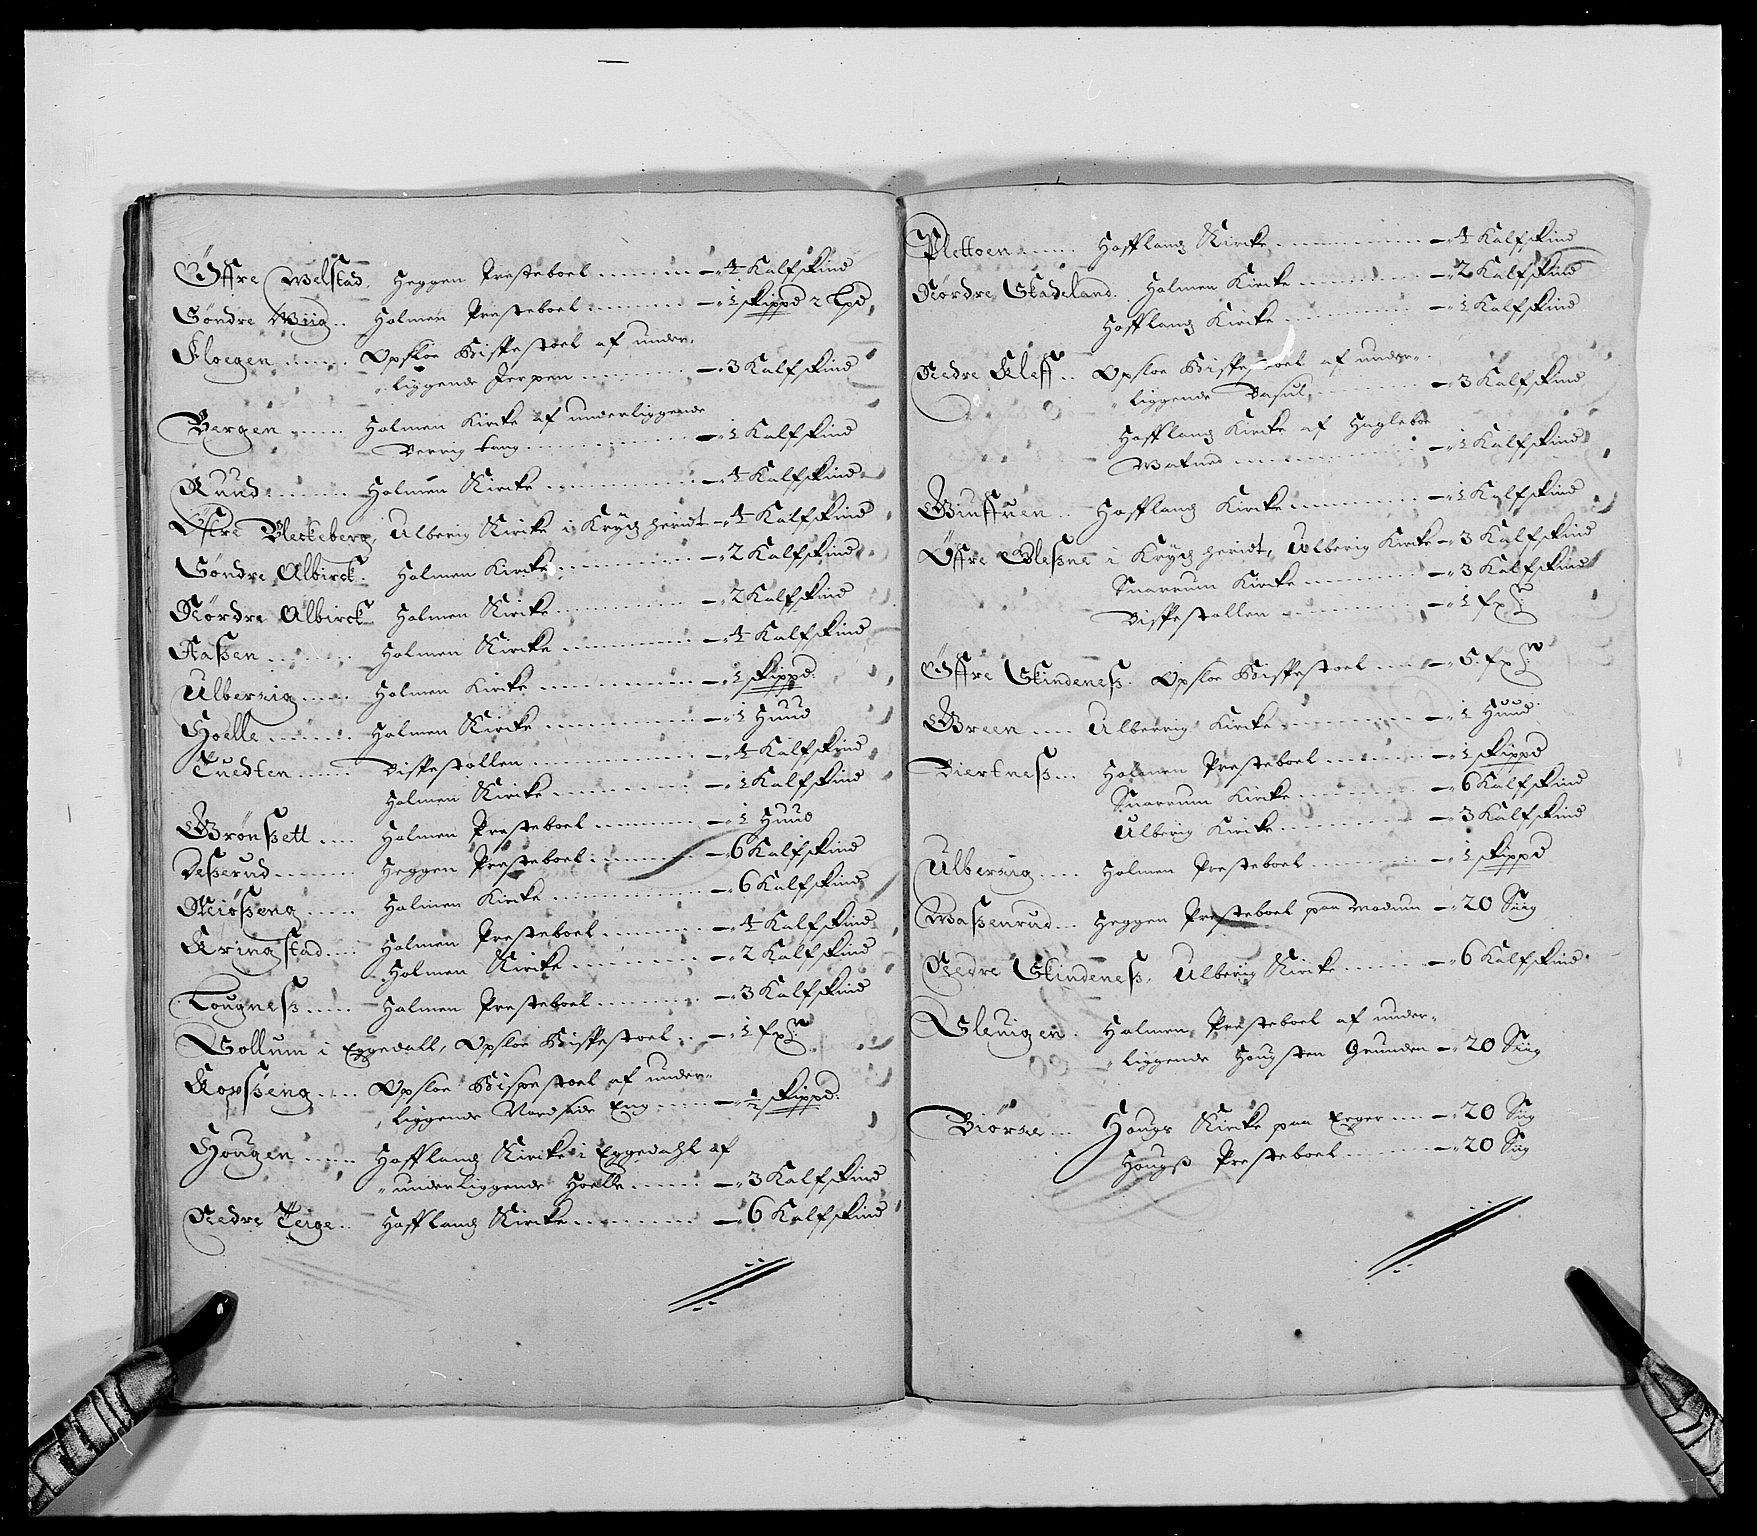 Øffre Welstad, Heggen Presteboel ........ 4 Kalfskind
Søndre Wiig .. Holmen Presteboel ........ 1 skippd 2 Lpd,
Floegen ...... Opsloe Bispestoel af under-
liggende Jerpen ........ 3 Kalfskind
Bergen ...... Holmen Kircke af underliggende
........ 1 Kalfskind
Ruud ........ Holmen Kircke ........ 4 Kalfskind
Øffre Bleckeberg, Ulberig Kircke i Krydsherridt - 4 Kalfskind
Søndre Albirck. Holmen Kircke ........ 2 Kalfskind
Nørdre Albirck Holmen Kircke ........ 2 Kalfskind
Aaßen ........ Holmen Kircke ........ 4 Kalfskind
Ulberiig ..... Holmen Kircke ........ 1 skippd.
Hoelle ........ Holmen Kircke ........ 1 Huud
Tuedten ...... Bispestollen ........ 4 Kalfskind
Holmen Kircke ........ 1 Kalfskind
Grønßett .... Holmen Presteboel ........ 1 Huud
Deßerud ........ Heggen Presteboel ........ 6 Kalfskind
Miøßeng ..... Holmen Kircke ........ 6 Kalfskind
Kringstad .... Holmen Presteboel ........ 4 Kalfskind
Holmen Kircke ........ 2 Kalfskind
Tougneß ..... Holmen Presteboel ........ 3 Kalfskind
Gollum i Eggedall, Opsloe Bispestoel .. 1 fxr
Kopßeng .... Opsloe Bispestoel af under-
liggende Nordside Eng ..... ½ skippd.
Hougen ...... Hofflands Kircke i Eggedahl af
underliggende Hoelle ...... 3 Kalfskind
Nedre Teige .. Hofflands Kircke ........ 6 Kalfskind
Plettoen ...... Hofflands Kircke ........ 4 Kalfskind
Nørdre Stadeland .. Holmen Kircke ........ 2 Kalfskind
Hofflands Kircke ........ 1 Kalfskind
Nedre Kleff .. Opsloe Bispestoel af under-
liggende Basul, ........ 3 Kalfskind
Hofflands Kircke af Hagleboe
Watned ........ 1 Kalfskind
Hofflands Kircke ........ 1 Kalfskind
Øffre Gleßne i Krydsherridt, Ulberig Kircke - 3 Kalfskind
Snarrum Kircke ........ 3 Kalfskind
Bispestollen ........ 1 fxr
Øffre Skindeneß. Opsloe Bispestoel .... 5. fxr
Green ..... Ulberrig Kircke ........ 1 Huud
Biertneß ... Holmen Presteboel ........ 1 skippd
Snarrum Kircke ........ 6 Kalfskind
Ulberig Kircke ........ 3 Kalfskind
Ulberiig .... Holmen Presteboel ........ 1 skippd
Waßenrud ... Heggen Presteboel paa Modum - 20 Siig
Nedre Skindeneß, Ulberig Kircke ...... 6 Kalfskind
Holmen Presteboel af under-
liggende Hougsten Grunden - 20 Siig
Biøre ... Hougs Kircke paa Eeger .... 20 Siig
Hougß Presteboel ........ 20 Siig